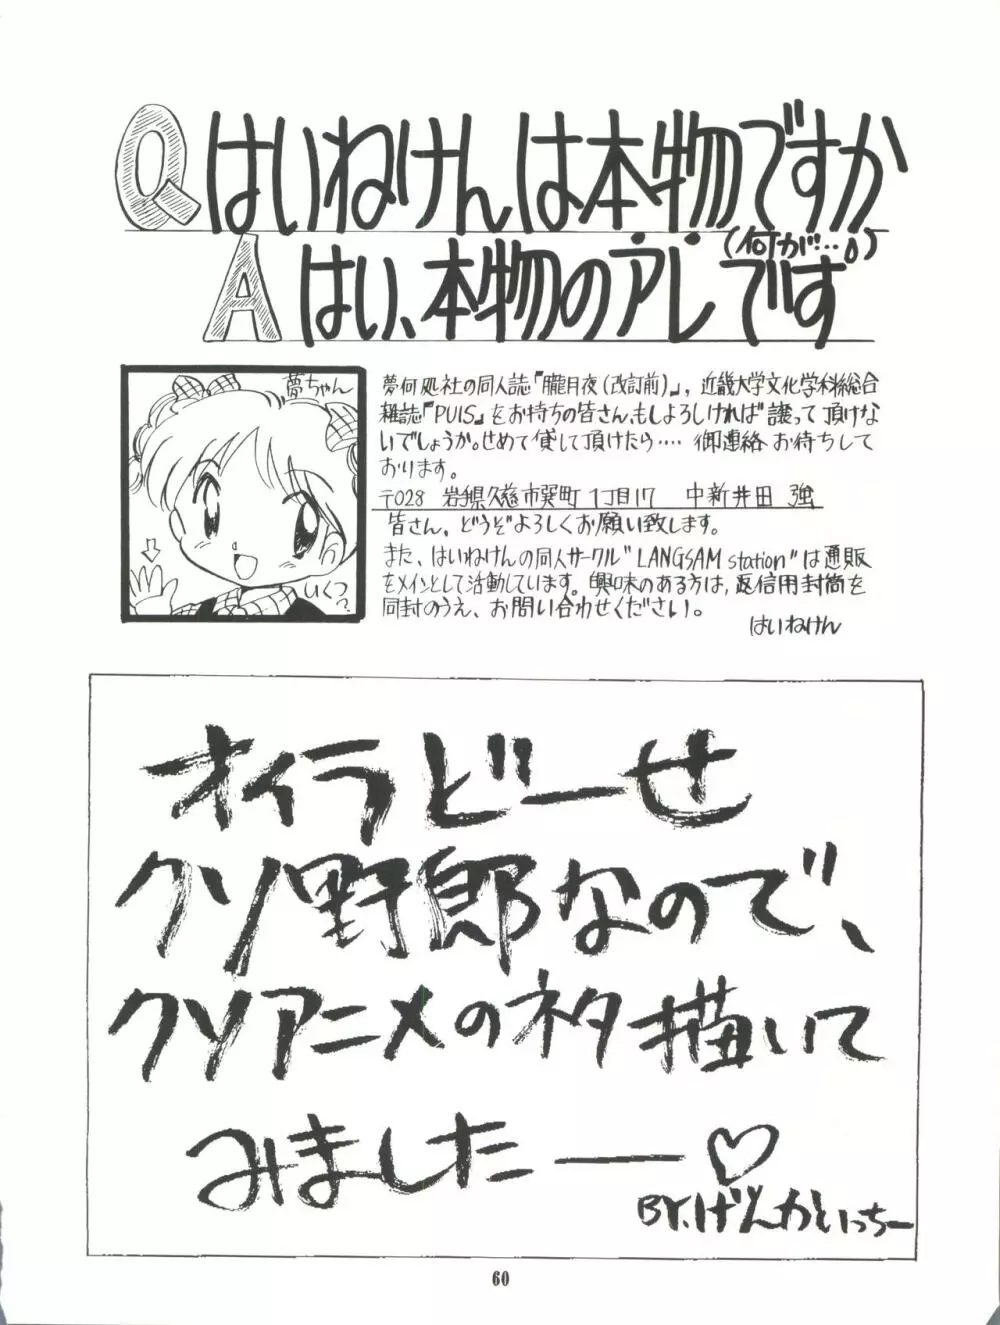 Q はいねけんは本物ですか
(何が…。)
A はい、本物のアレです
夢ちゃん
いくつ?
夢何処社の同人誌『朧月夜(改訂前)』, 近畿大学文化学科総合
雑誌『PUIS』をお持ちの皆さん、もしよろしければ譲って頂けな
いでしょうか。せめて貸して頂けたら‥‥ 御連絡お待ちして
おります。
〒028 岩手県久慈市巽町1丁目17 中新井田 強
皆さん、どうぞよろしくお願い致します。
また、はいねけんの同人サークル"LANGSAM station"は通販
をメインとして活動しています。興味のある方は, 返信用封筒を
同封のうえ、お問い合わせください。
はいねけん
オイラどーせ
クソ野郎なので、
クソアニメのネタ描いて
みましたー♡
BY.げんかいっちー
60